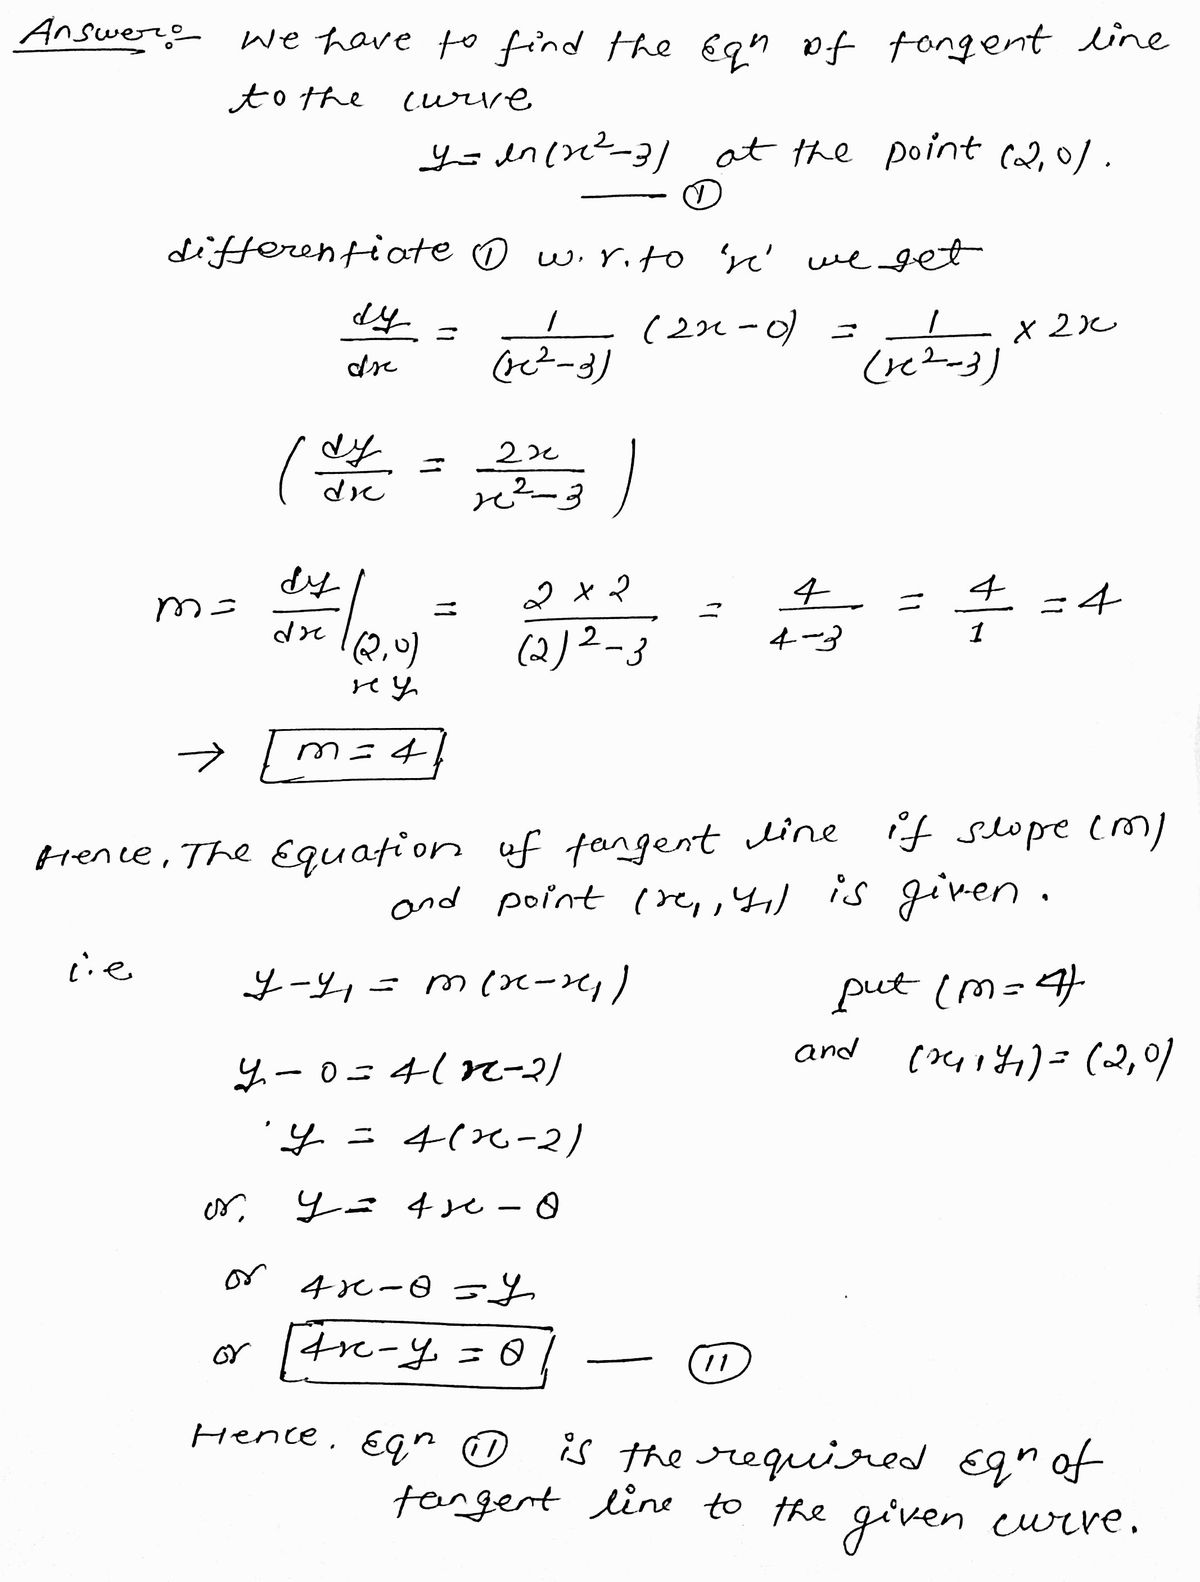 Answer:- We have to find the Eqn of tangent line
to the curve
y = ln(x²-3) at the point (2,0).
— ①
differentiate ① w.r.to 'x' we get
dy/dx = 1/(x²-3) (2x-0) = 1/(x²-3) × 2x
(dy/dx = 2x/x²-3)
m = dy/dx |(2,0) = 2×2/(2)²-3 = 4/4-3 = 4/1 = 4
x y
→ m = 4
Hence, The Equation of tangent line if slope (m)
and point (x₁, y₁) is given.
i.e y-y₁ = m(x-x₁) put (m=4)
y-0 = 4(x-2) and (x₁, y₁) = (2,0)
y = 4(x-2)
or, y = 4x-8
or 4x-8 = y
or 4x-y = 8 — ⑪
Hence. Eqn ⑪ is the required Eqn of
tangent line to the given curve.